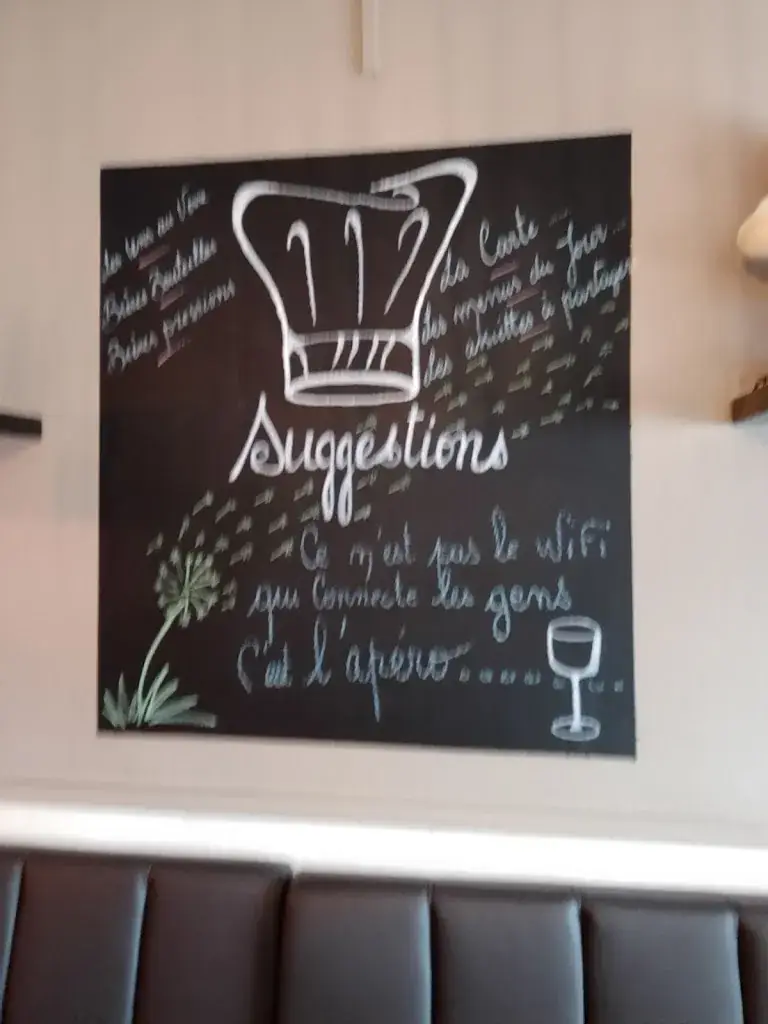 Les vins au Verre
Bières Bouteilles
Bières pressions
La Carte ...
des menus du jour ...
des assiettes à partager
Suggestions
Ce n'est pas le WiFi
qui connecte les gens
C'est l'apéro........